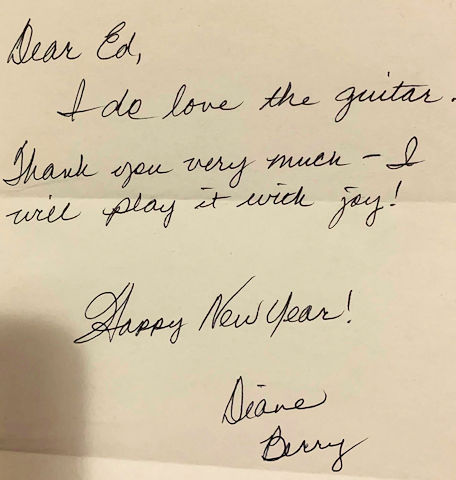 Dear Ed,
I do love the guitar.
Thank you very much - I
will play it with joy!
Happy New Year!
Diane
Berry